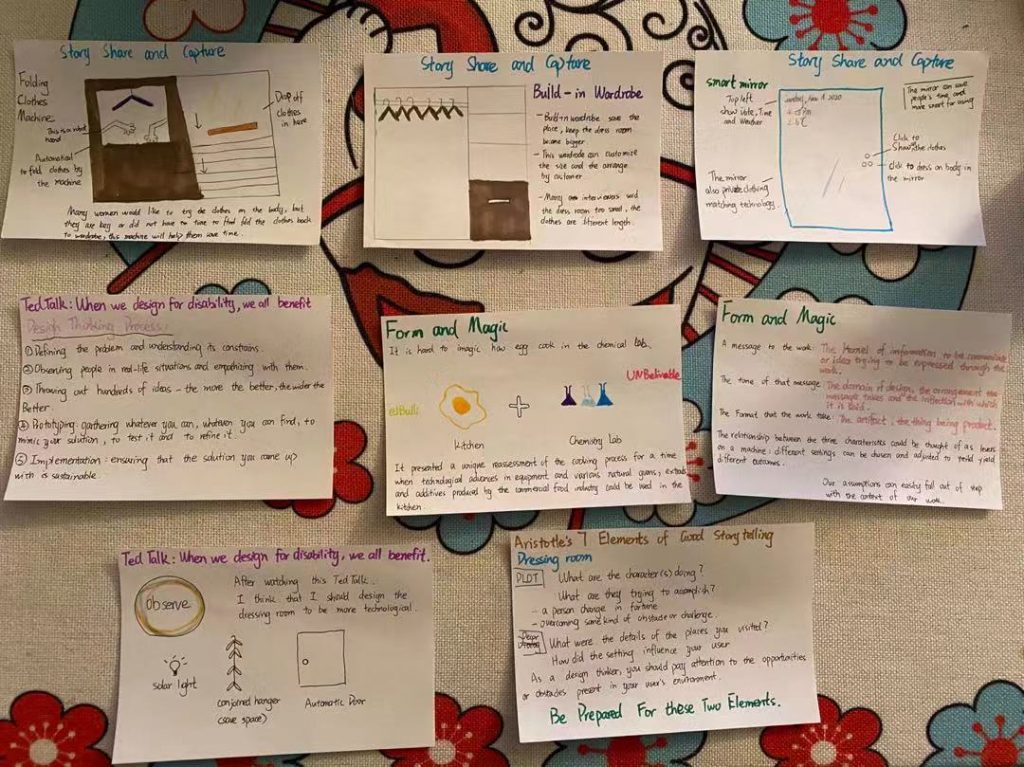 Story Share and Capture
Folding
Clothes
Machines
This is a robot
hand
Automatical
to fold clothes by
the machine
Drop off
clothes
in here
Many women would like to try the clothes on the body, but
they are busy or did not have to time to find fold the clothes back
to wardrobe, this machine will help them save time.
Story Share and Capture
Build-in Wardrobe
- Built-in wardrobe save the
place, keep the dress room
become bigger
- This wardrobe can customize
the size and the arrange
by customer
- Many interviewers said
the dress room too small, the
clothes are different length.
Story Share and Capture
smart mirror
Top left
show date, Time
and Weather
Sunday, Nov 1 2020
The mirror can save
people's time, and
make smart for using
Click to
Show the clothes
click to dress on body in
the mirror
The mirror
also private clothing
matching technology.
Ted Talk: When we design for disability, we all benefit
Design Thinking Process:
① Defining the problem and understanding its constrains.
② Observing people in real-life situations and empathizing with them.
③ Throwing out hundreds of ideas - the more the better, the wider the
Better.
④ Prototyping: gathering whatever you can, whatever you can find, to
mimic your solution, to test it and to refine it.
⑤ Implementation: ensuring that the solution you came up
with is sustainable.
Form and Magic
It is hard to imagic how egg cook in the chemical lab.
UNBelivable
elBulli
Kitchen
Chemistry lab
It presented a unique reassessment of the cooking process for a time
when technological advances in equipment and various natural gums,
and additives produced by the commercial food industry could be used in the
kitchen.
Form and Magic
A message to the work: The kernel of information to be communicate
or idea trying to be expressed through the
work.
The tone of that message: The domain of design, the arrangement the
message takes and the inflection with which
it is told.
The Format that the work take: The artifact, the thing being product.
The relationship between the three charateristics could be thought of as levers
on a machine: different settings can be chosen and adjusted to yeild yield
different outcomes.
Our assumptions can easily fall out of step
with the context of our work.
Ted Talk: When we design for disability, we all benefit.
Observe
After watching this Ted Talk.
I think that I should design the
dressing room to be more technological.
solar light
conjoined hanger
(save space)
Automatic Door
Aristotle's 7 Elements of Good Storytelling
Dressing room
PLOT
What are the character(s) doing?
What are they trying to accomplish?
- a person change in fortune
- overcoming some kind of obstacle or challenge.
What were the details of the places you visited?
How did the setting influence your user
As a design thinker, you should pay attention to the opportunities
or obstacles present in your user's environment.
Be Prepared For these Two Elements.